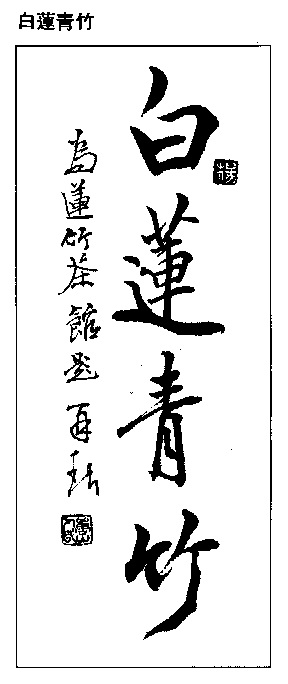 白蓮青竹
白蓮青竹
為蓮竹茶館題